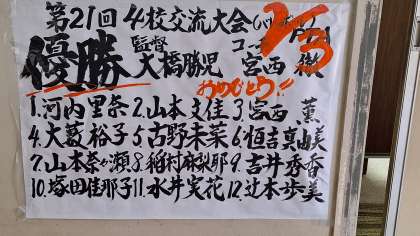 第21回 4校交流大会
優勝 監督 大橋勝児 コーチ 宮西 徹
2/3
おめでとう!!
1.河内里奈 2.山本文佳 3.宮西 薫
4.大藪裕子 5.古野未菜 6.恒吉真由美
7.山本奈か瀬 8.稲村麻梨耶 9.吉井秀香
10.塚田佳耶子 11.水井実花 12.辻本歩美